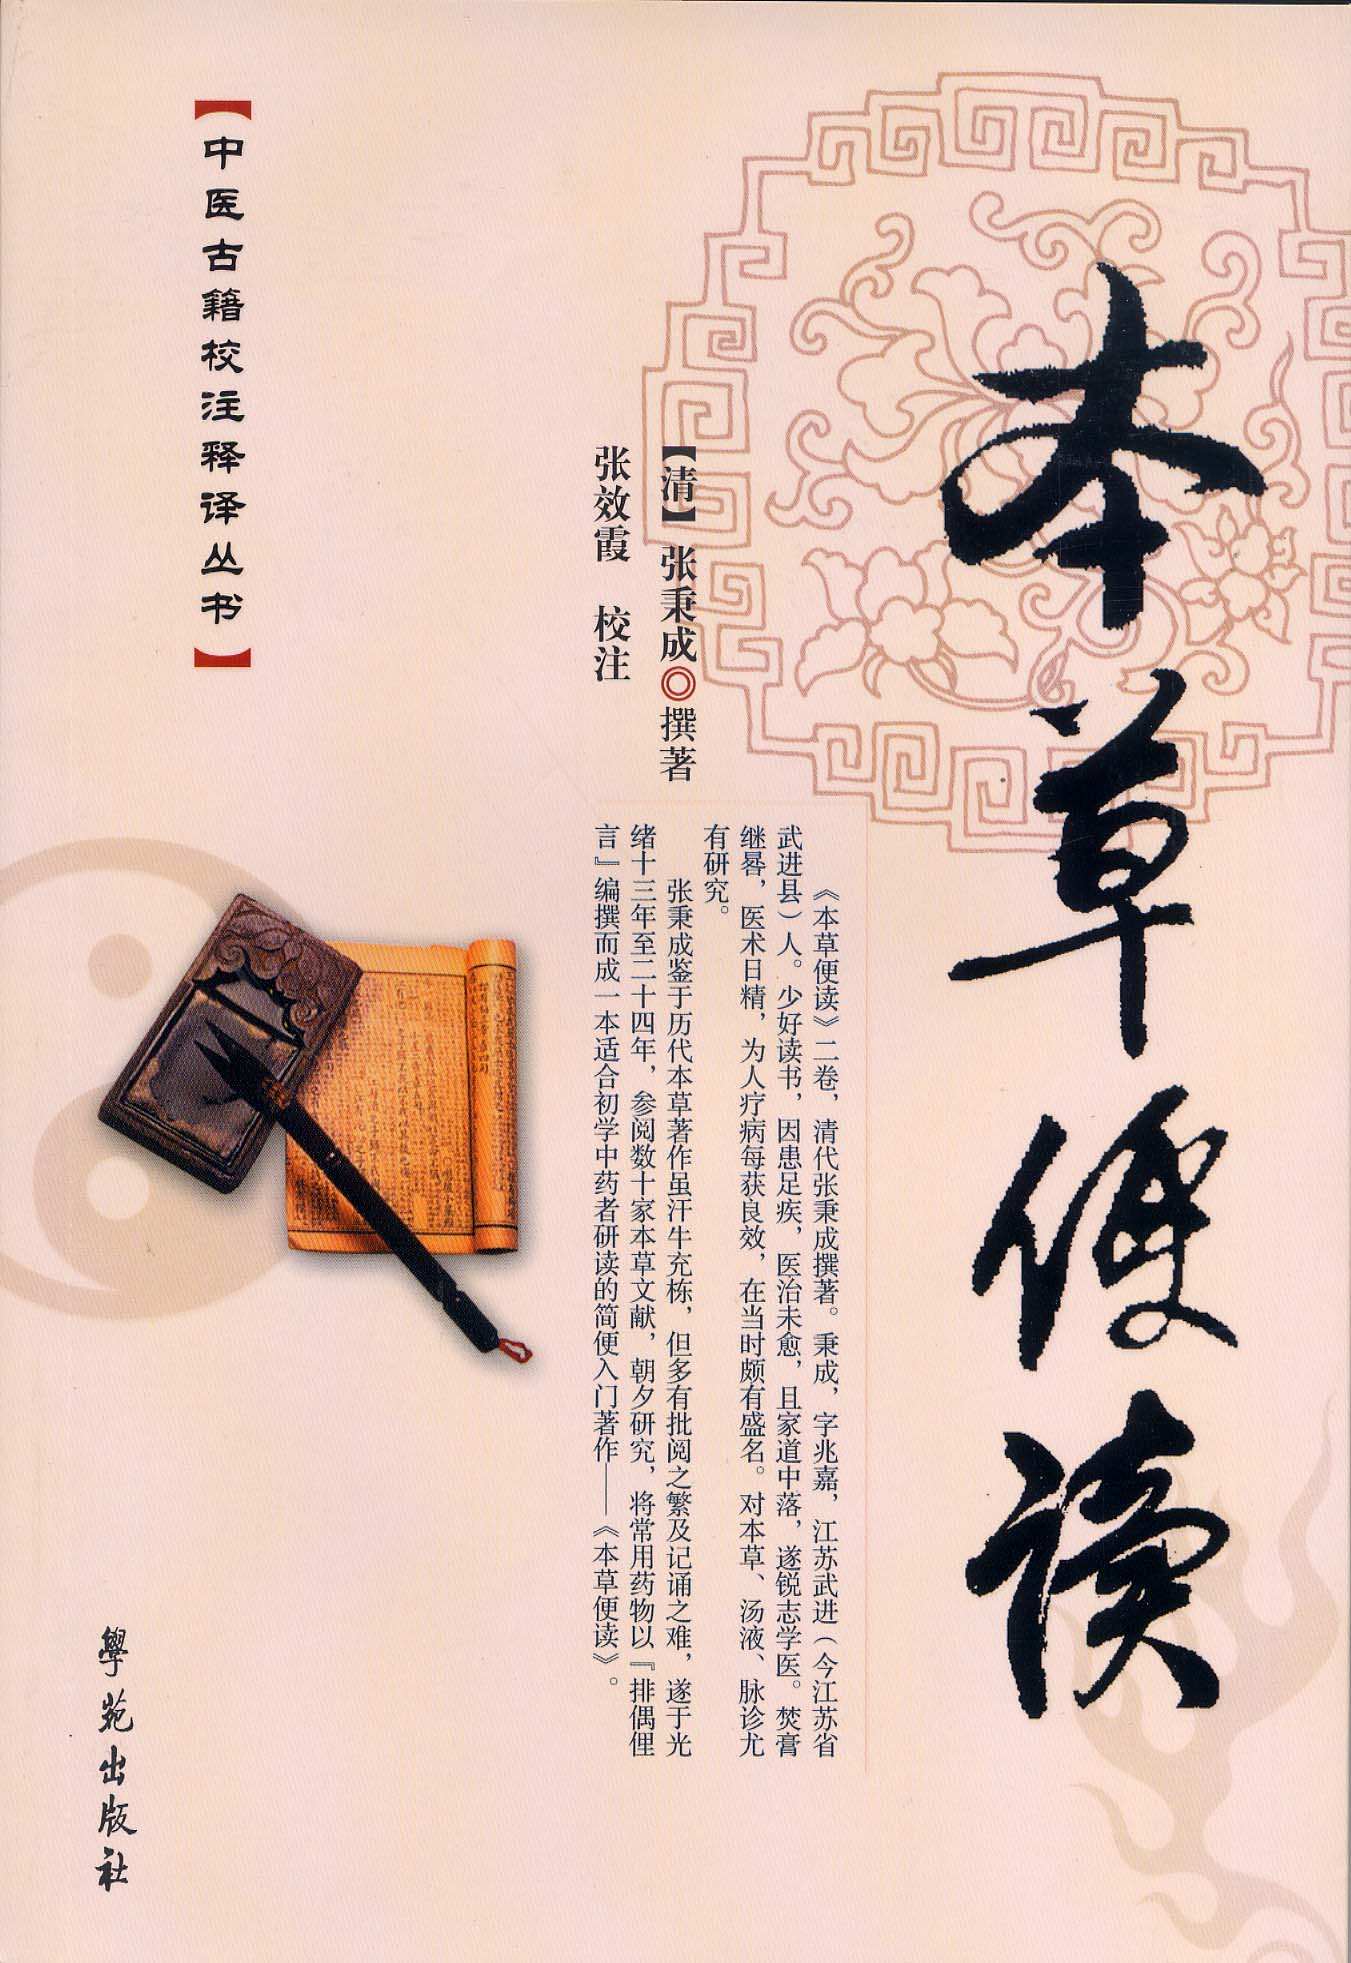 本草便读
【清】 张秉成◎撰著
张效霞 校注
《本草便读》二卷，清代张秉成撰著。秉成，字兆嘉，江苏武进（今江苏省
武进县）人。少好读书，因患足疾，医治未愈，且家道中落，遂锐志学医。焚膏
继晷，医术日精，为人疗病每获良效，在当时颇有盛名。对本草、汤液、脉诊尤
有研究。
张秉成鉴于历代本草著作虽汗牛充栋，但多有批阅之繁及记诵之难，遂于光
绪十三年至二十四年，参阅数十家本草文献，朝夕研究，将常用药物以『排偶俚
言』编撰而成一本适合初学中药者研读的简便入门著作——《本草便读》。
【中医古籍校注释译丛书】
學苑出版社